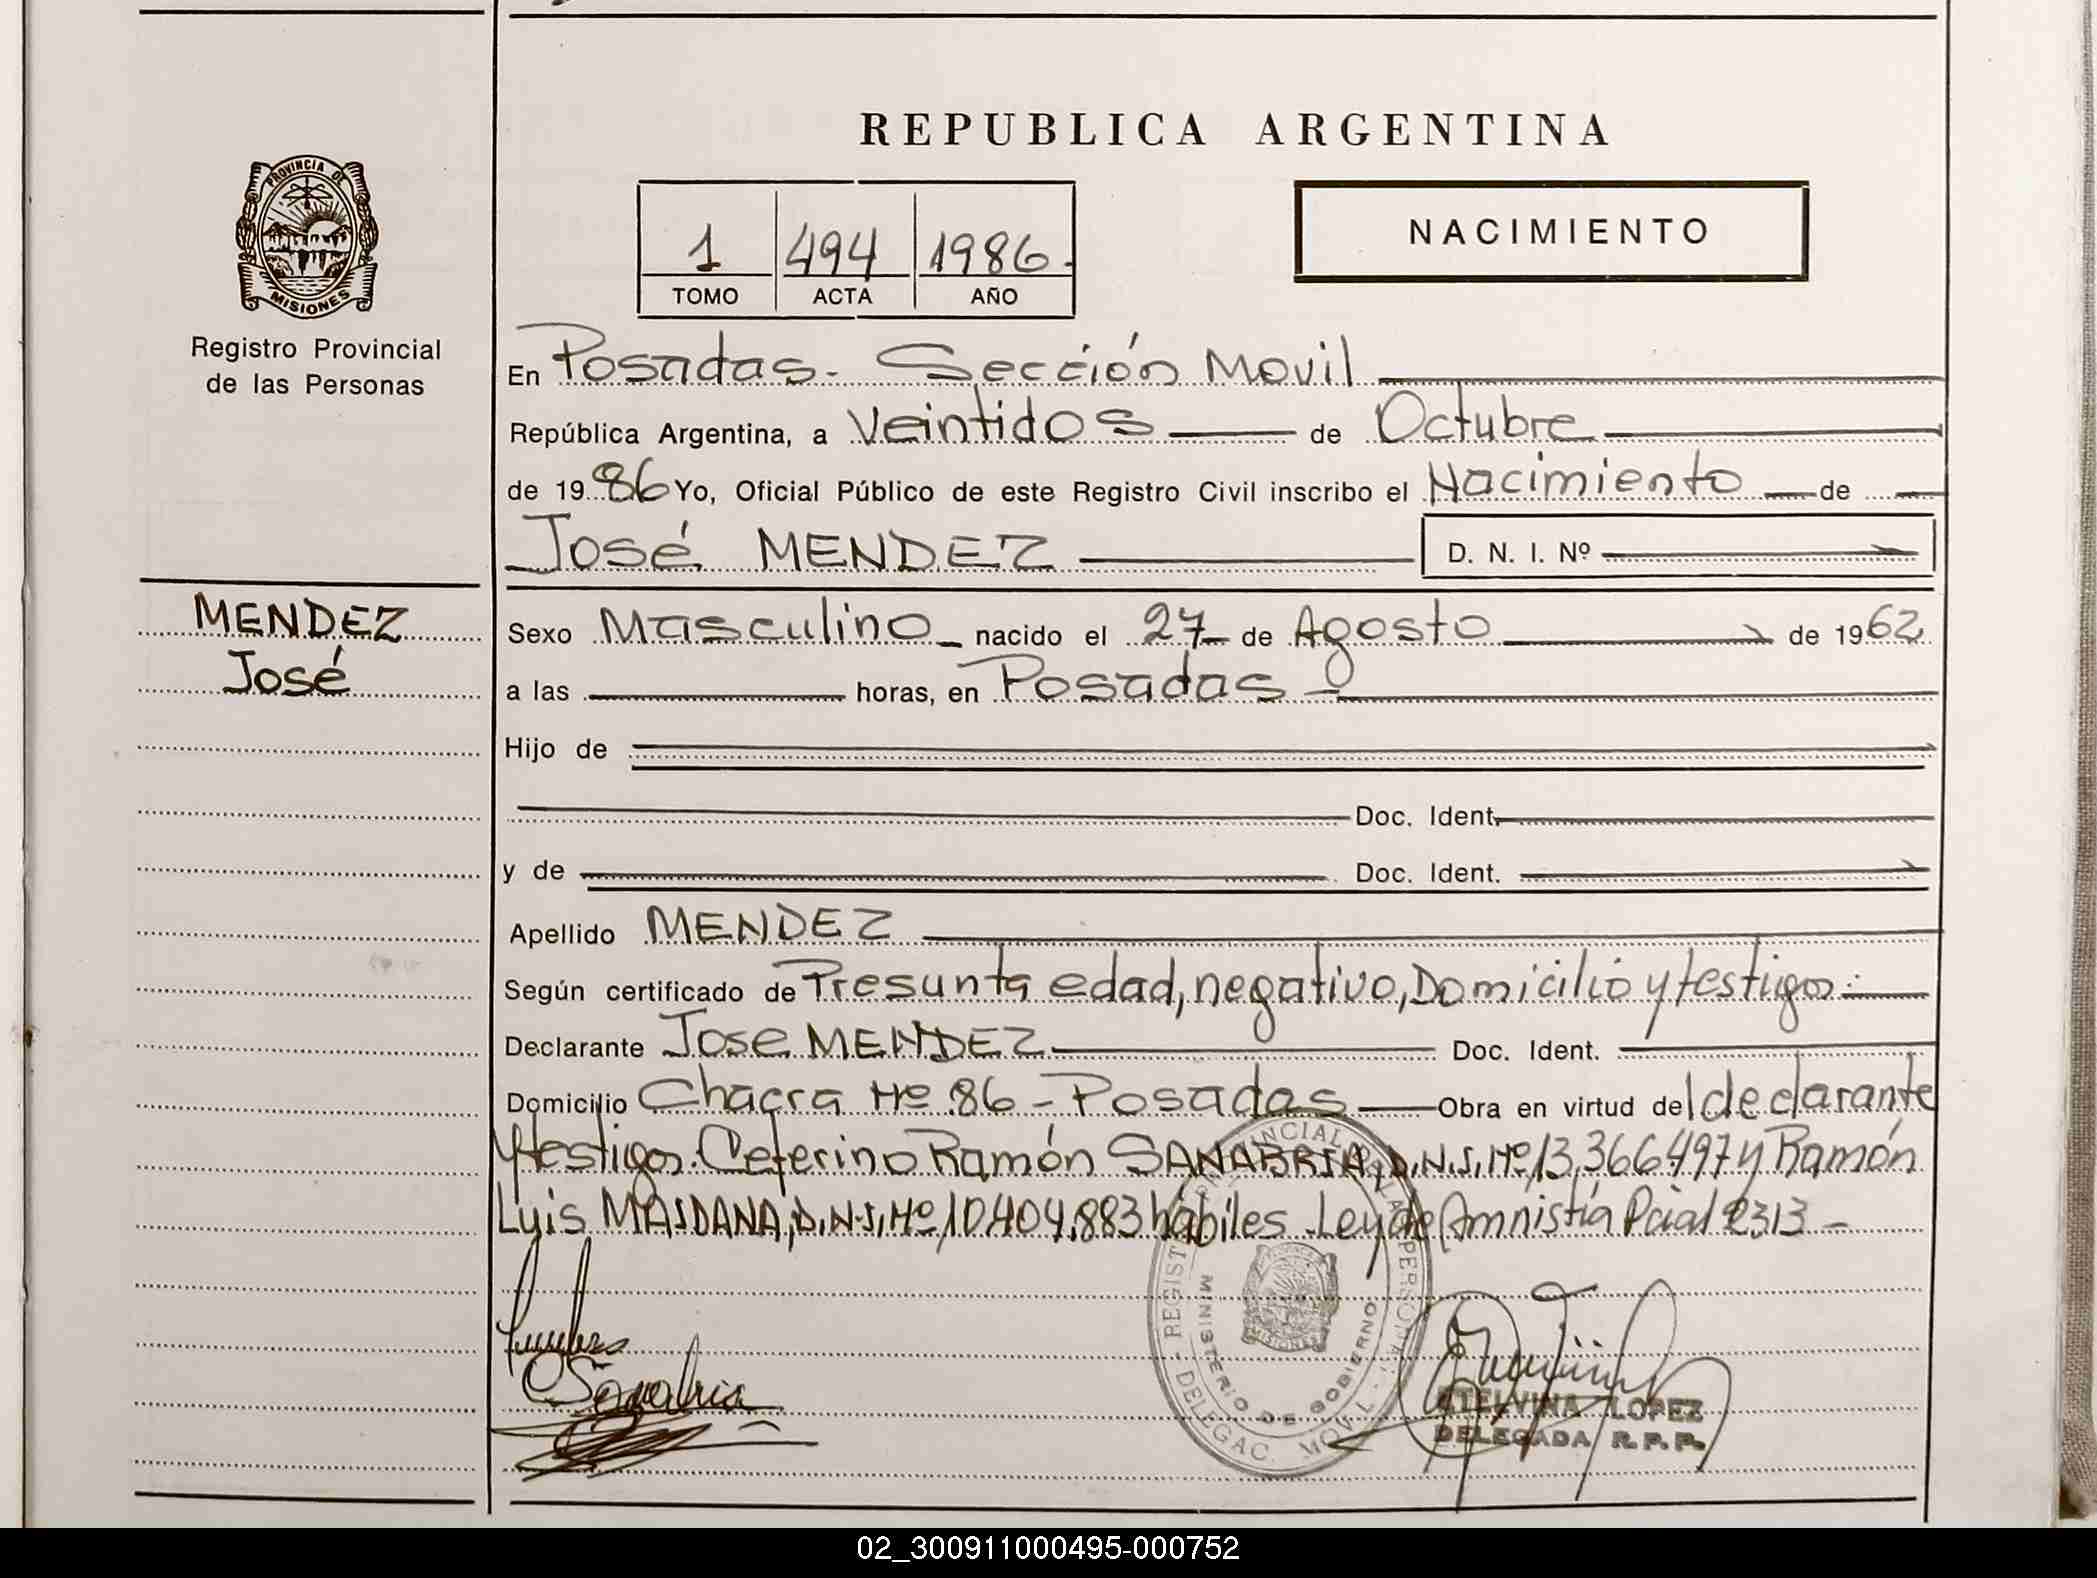 REPUBLICA ARGENTINA
PROVINCIA DE
MISIONES
Registro Provincial
de las Personas
1 494 1986.
TOMO ACTA AÑO
NACIMIENTO
En Posadas - Sección Movil
República Argentina, a Veintidos de Octubre
de 1986 Yo, Oficial Público de este Registro Civil inscribo el Nacimiento de
José MENDEZ D. N. I. Nº
MENDEZ
José
Sexo Masculino nacido el 27 de Agosto de 1962
a las horas, en Posadas -
Hijo de
Doc. Ident.
y de Doc. Ident.
Apellido MENDEZ
Según certificado de Presunta edad, negativo, Domicilio y testigos:
Declarante Jose MENDEZ Doc. Ident.
Domicilio Chacra Nº 86 - Posadas Obra en virtud del declarante
y testigos. Ceferino Ramón SANABRIA, D.N.I. Nº 13,366497 y Ramón
Luis MAIDANA, D.N.I. Nº 10.404.883 hábiles - Ley de Amnistía Pcial 2313 -
Sanabria
MINISTERIO DE GOBIERNO
MISIONES
DELEGAC. MOVIL
ETELVINA LOPEZ
DELEGADA R.P.P.
02_300911000495-000752